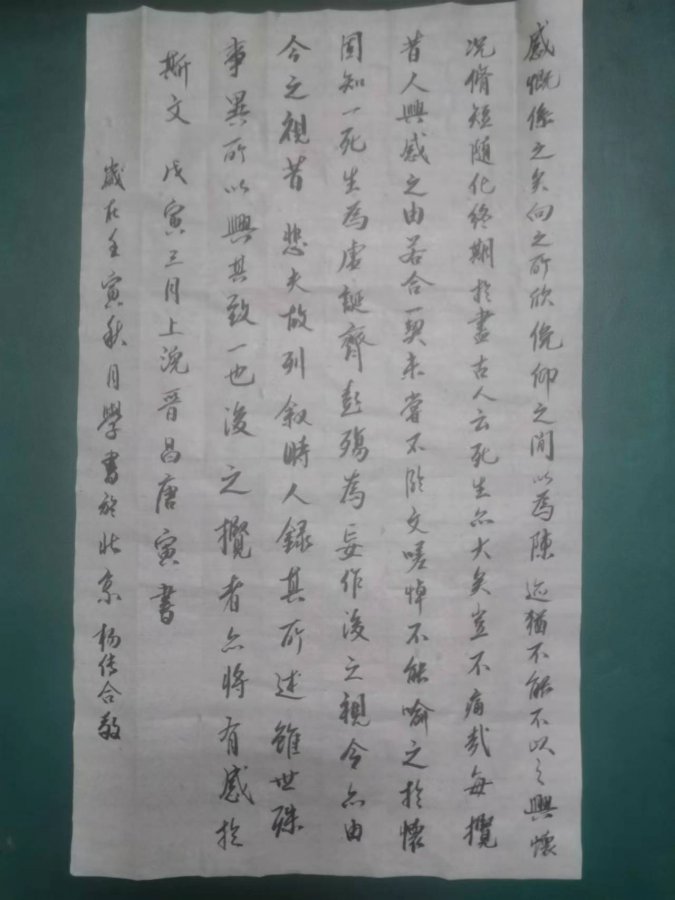 感慨係之矣向之所欣俛仰之間以為陳迹猶不能不以之興懷
况脩短隨化終期於盡古人云死生亦大矣豈不痛哉每攬
昔人興感之由若合一契未嘗不臨文嗟悼不能喻之於懷
固知一死生為虛誕齊彭殤為妄作後之視今亦由
今之視昔悲夫故列叙時人錄其所述雖世殊
事異所以興其致一也後之攬者亦將有感於
斯文 戊寅三月上浣晉昌唐寅書
歲在壬寅秋月學書於北京楊传合敬